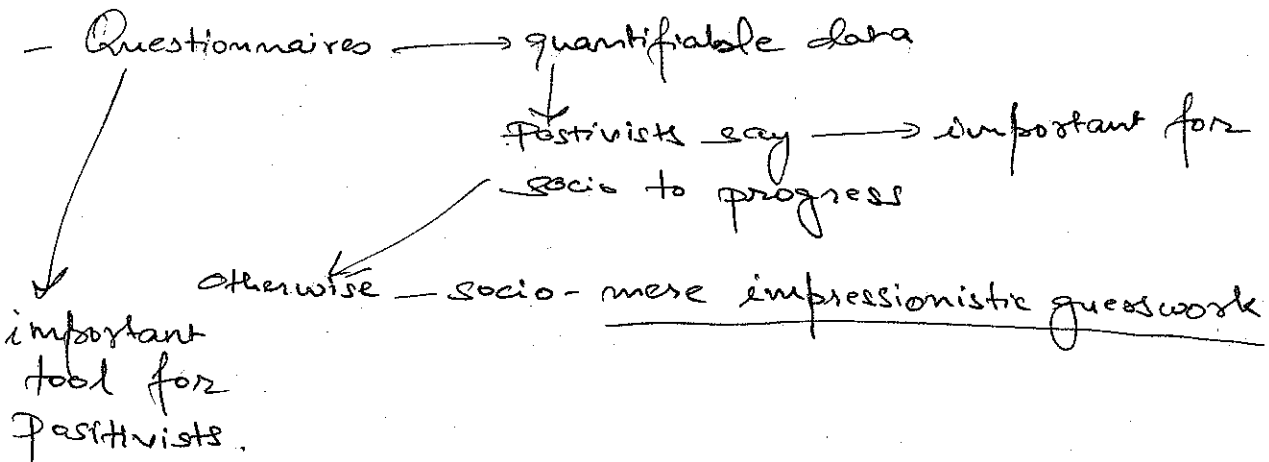 - Questionnaires → quantifiable data
Postivists say → important for
socio to progress
Otherwise - socio - mere impressionistic guesswork
important
tool for
Positivists.